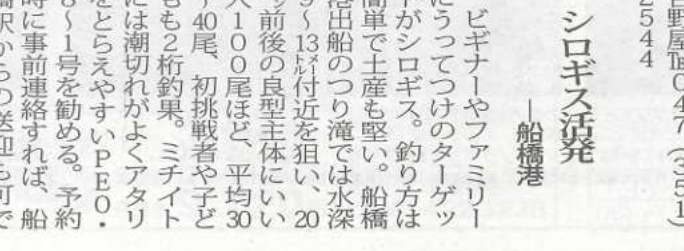 吉野屋℡047(351)
2544
シロギス活発
―船橋港
ビギナーやファミリー
にうってつけのターゲッ
トがシロギス。釣り方は
簡単で土産も堅い。船橋
港出船のつり滝では水深
9〜13㍍付近を狙い、20
㌢前後の良型主体にいい
人100尾ほど、平均30
〜40尾、初挑戦者や子ど
もも2桁釣果。ミチイト
には潮切れがよくアタリ
をとらえやすいPE0・
8〜1号を勧める。予約
時に事前連絡すれば、船
橋駅からの送迎も可で